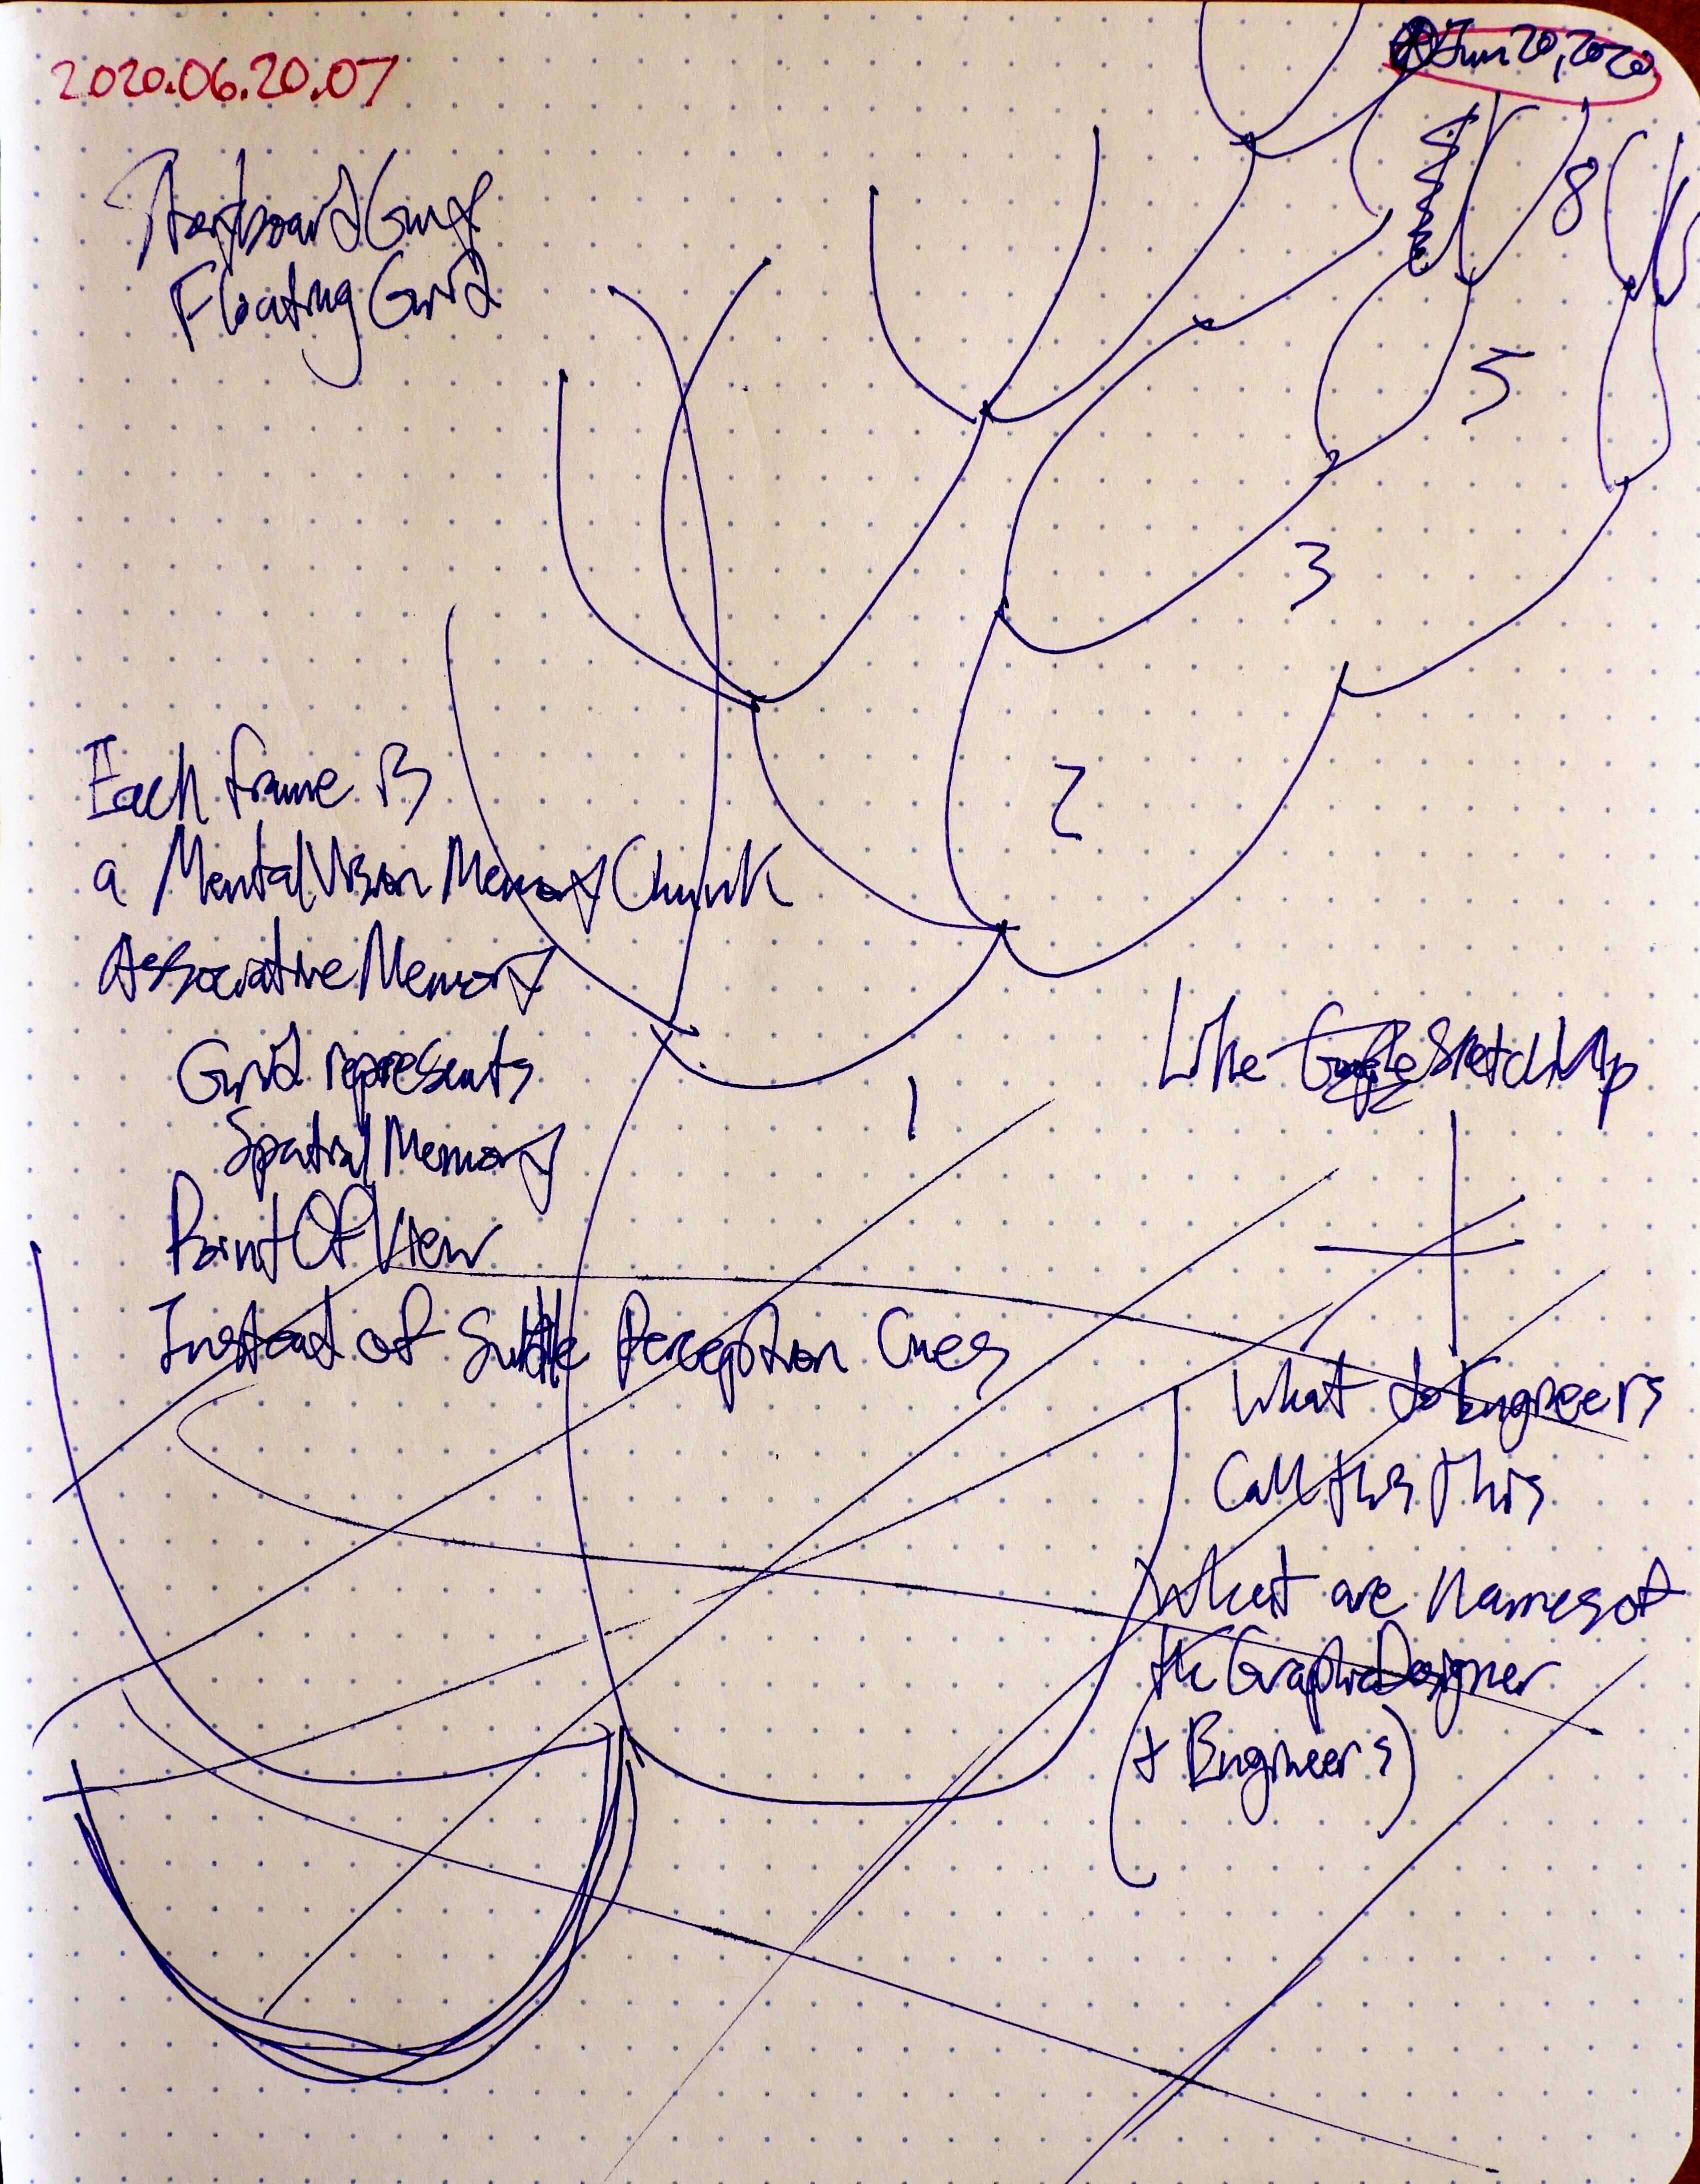 2020.06.20.07
Jun 20, 2020
Floating Grid
8
5
3
2
1
Each frame is
a MentalVision Memory Chunk
Associative Memory
Grid represents
Spatial Memory
PointOfView
Instead of Subtle Perception Cues
Like Google SketchUp
What do Engineers
Call this this
What are Names of
the GraphicDesigner
(+ Engineers)